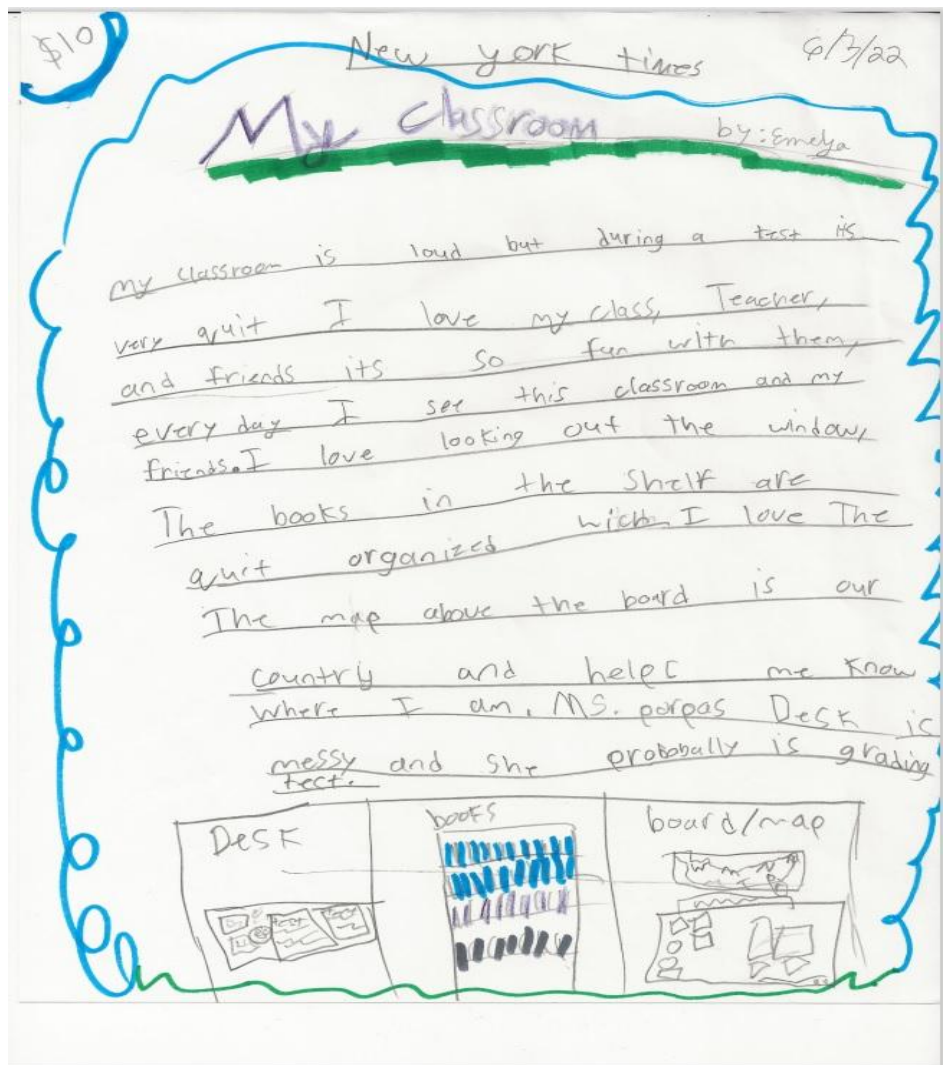 $10
New york times
6/3/22
My classroom
by: Emelya
my classroom is loud but during a test its
very quit I love my class, Teacher,
and friends its so fun with them,
every day I see this classroom and my
friends. I love looking out the window,
The books in the shelf are
quit organized wich I love The
The map above the board is our
country and helpc me know
where I am, MS. porpas Desk is
messy and she probobally is grading
tect.
Desk
books
board/map